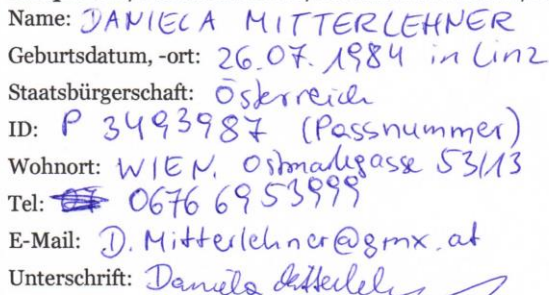 Name: DANIELA MITTERLEHNER
Geburtsdatum, -ort: 26.07.1984 in Linz
Staatsbürgerschaft: Österreich
ID: P 3493987 (Passnummer)
Wohnort: WIEN, Ostmarkgasse 53/13
Tel: 0676 6953999
E-Mail: D.Mitterlehner@gmx.at
Unterschrift: Daniela